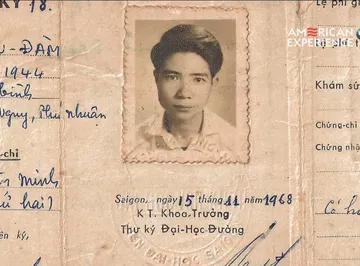 KỲ 18.
-ĐÀM
1944
Bình
Ngụy, Phú Nhuận
-chỉ
Minh
hai)
ên ký,
Saigon, ngày 15 tháng 11 năm 1968
K T. Khoa-Trưởng
Thư ký Đại-Học Đường
ĐẠI-HỌC SAIG
Lệ phí gh
Lệ
Khám sứ
Chứng-chỉ
Chứng nhậ
Có h
AMERICAN
EXPERIENCE